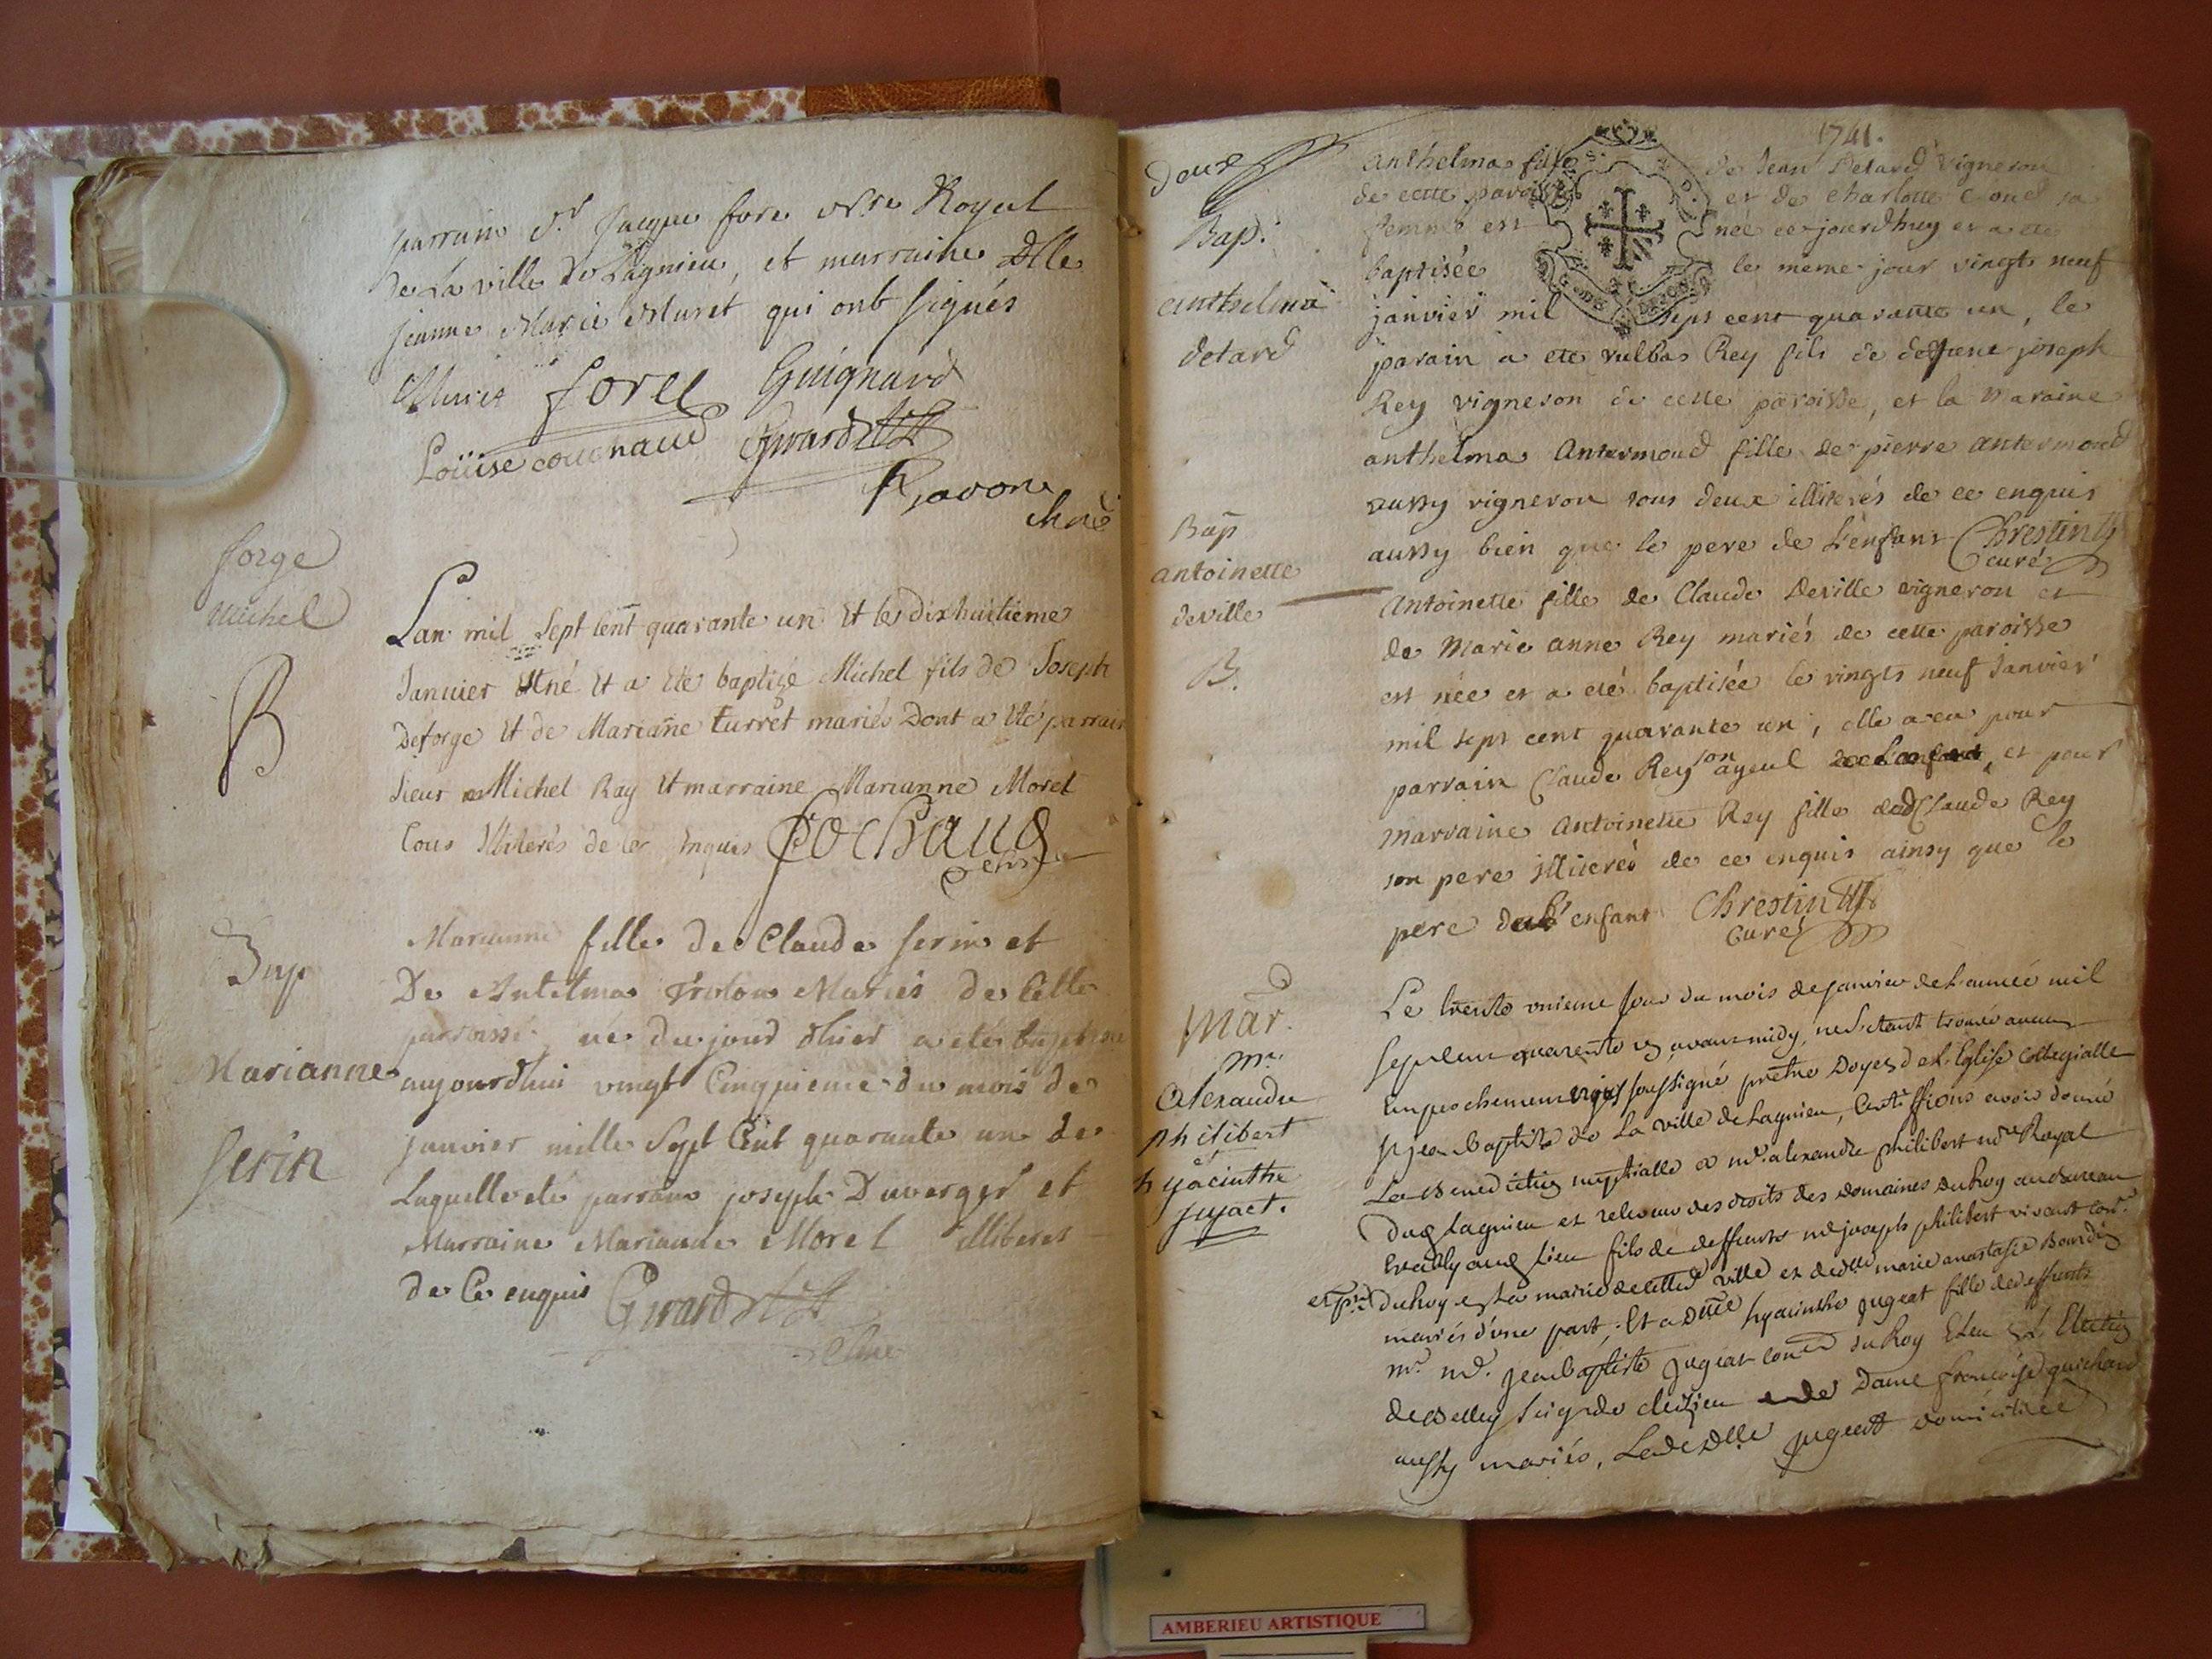 parrain Sr. Jacque fore
de La ville de Lagnieu, et marraine Dlle
jeanne Marie Muret qui ont signés
Muret forel Guignard
Loüise couchaud Girardet
Ravon
chne
forge
Michel
B
Lan mil Sept Cent quarante un Et le dixhuitieme
Januier Est né Et a Eté baptizé Michel fils de Joseph
Deforge Et de Mariane turret mariés Dont a Eté parrain
Sieur Michel Ray Et marraine Marianne Moret
tous Illiterés de ce Enquis Cochaud
chne
Bap
Marianne
Serin
Marianne fille de Claude serin et
De Antelma Mariés de Cette
parroisse née du jour d'hier a eté baptisée
aujourdhui vingt Cinquieme du mois de
janvier mille Sept Cent quarante un de
Laquelle eté parrain joseph Duverger et
Marraine Marianne Morel illiteres
de Ce enquis Girardet
Chne
1741.
deux
Bap.
anthelma
detard
anthelma fille de Jean Detard vigneron
de cette paroisse et de charlotte sa
femme est née ce jourdhuy et a ete
baptisée le meme jour vingts neuf
janvier mil sept cent quarante un, le
parain a ete vulbas Rey fils de deffunt joseph
Rey vigneron de cette paroisse, et la maraine
anthelma Antermoud fille de pierre antermoud
aussy vigneron tous deux illiterés de ce enquis
aussy bien que le pere de l'enfant Chrestin
curé
Bap
antoinette
deville
B.
Antoinette fille de Claude Deville vigneron et
de Marie anne Rey mariés de cette paroisse
est née et a eté baptisée le vingts neuf Janvier
mil sept cent quarante un, elle a eu pour
parrain Claude Rey son ayeul et pour
marraine Antoinette Rey fille dud Claude Rey
son pere illiterés de ce enquis ainsy que le
pere de l'enfant Chrestin
Curé
Mar.
Mr.
Alexandre
philibert
et
hyacinthe
jujact.
Le trente unieme jour du mois de janvier de L'année mil
sept cent quarente un avant midy, ne s'etant trouvé aucun
Empechement soussigné pretre Doyen de L'Eglise Collegialle
St jean Baptiste de La ville de Lagnieu, Certiffions avoir donné
La Benediction nuptialle a me. alexandre philibert nore Royal
Dud Lagnieu et receveur des droits des domaines du Roy au Bureau
Etably aud Lieu fils de deffunts me joseph philibert vivant Coner.
du Roy et en La mairie de cette ville et de dlle marie anastasie Bourdin
mariés d'une part, Et a Dlle hyacinthe jugeat fille de deffunts
Mr. Me. jean Baptiste jugeat Coner du Roy Eleu en L'Election
de Belley Seigr de cleizieu et de Dame françoise guichard
aussy mariés, Ladite Dlle jugeat domiciliée
AMBERIEU ARTISTIQUE